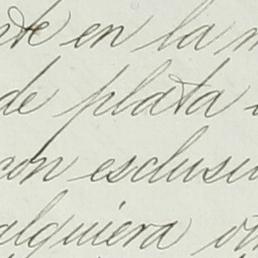 nte en la m
de plata
con esclusi
alquiera ot